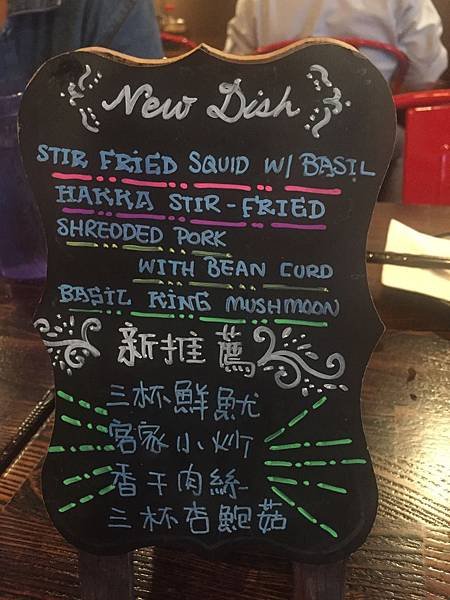 New Dish
STIR FRIED SQUID W/ BASIL
HAKKA STIR-FRIED
SHREDDED PORK
WITH BEAN CURD
BASIL KING MUSHMOON
新推薦
三杯鮮魷
客家小炒
香干肉絲
三杯杏鮑菇